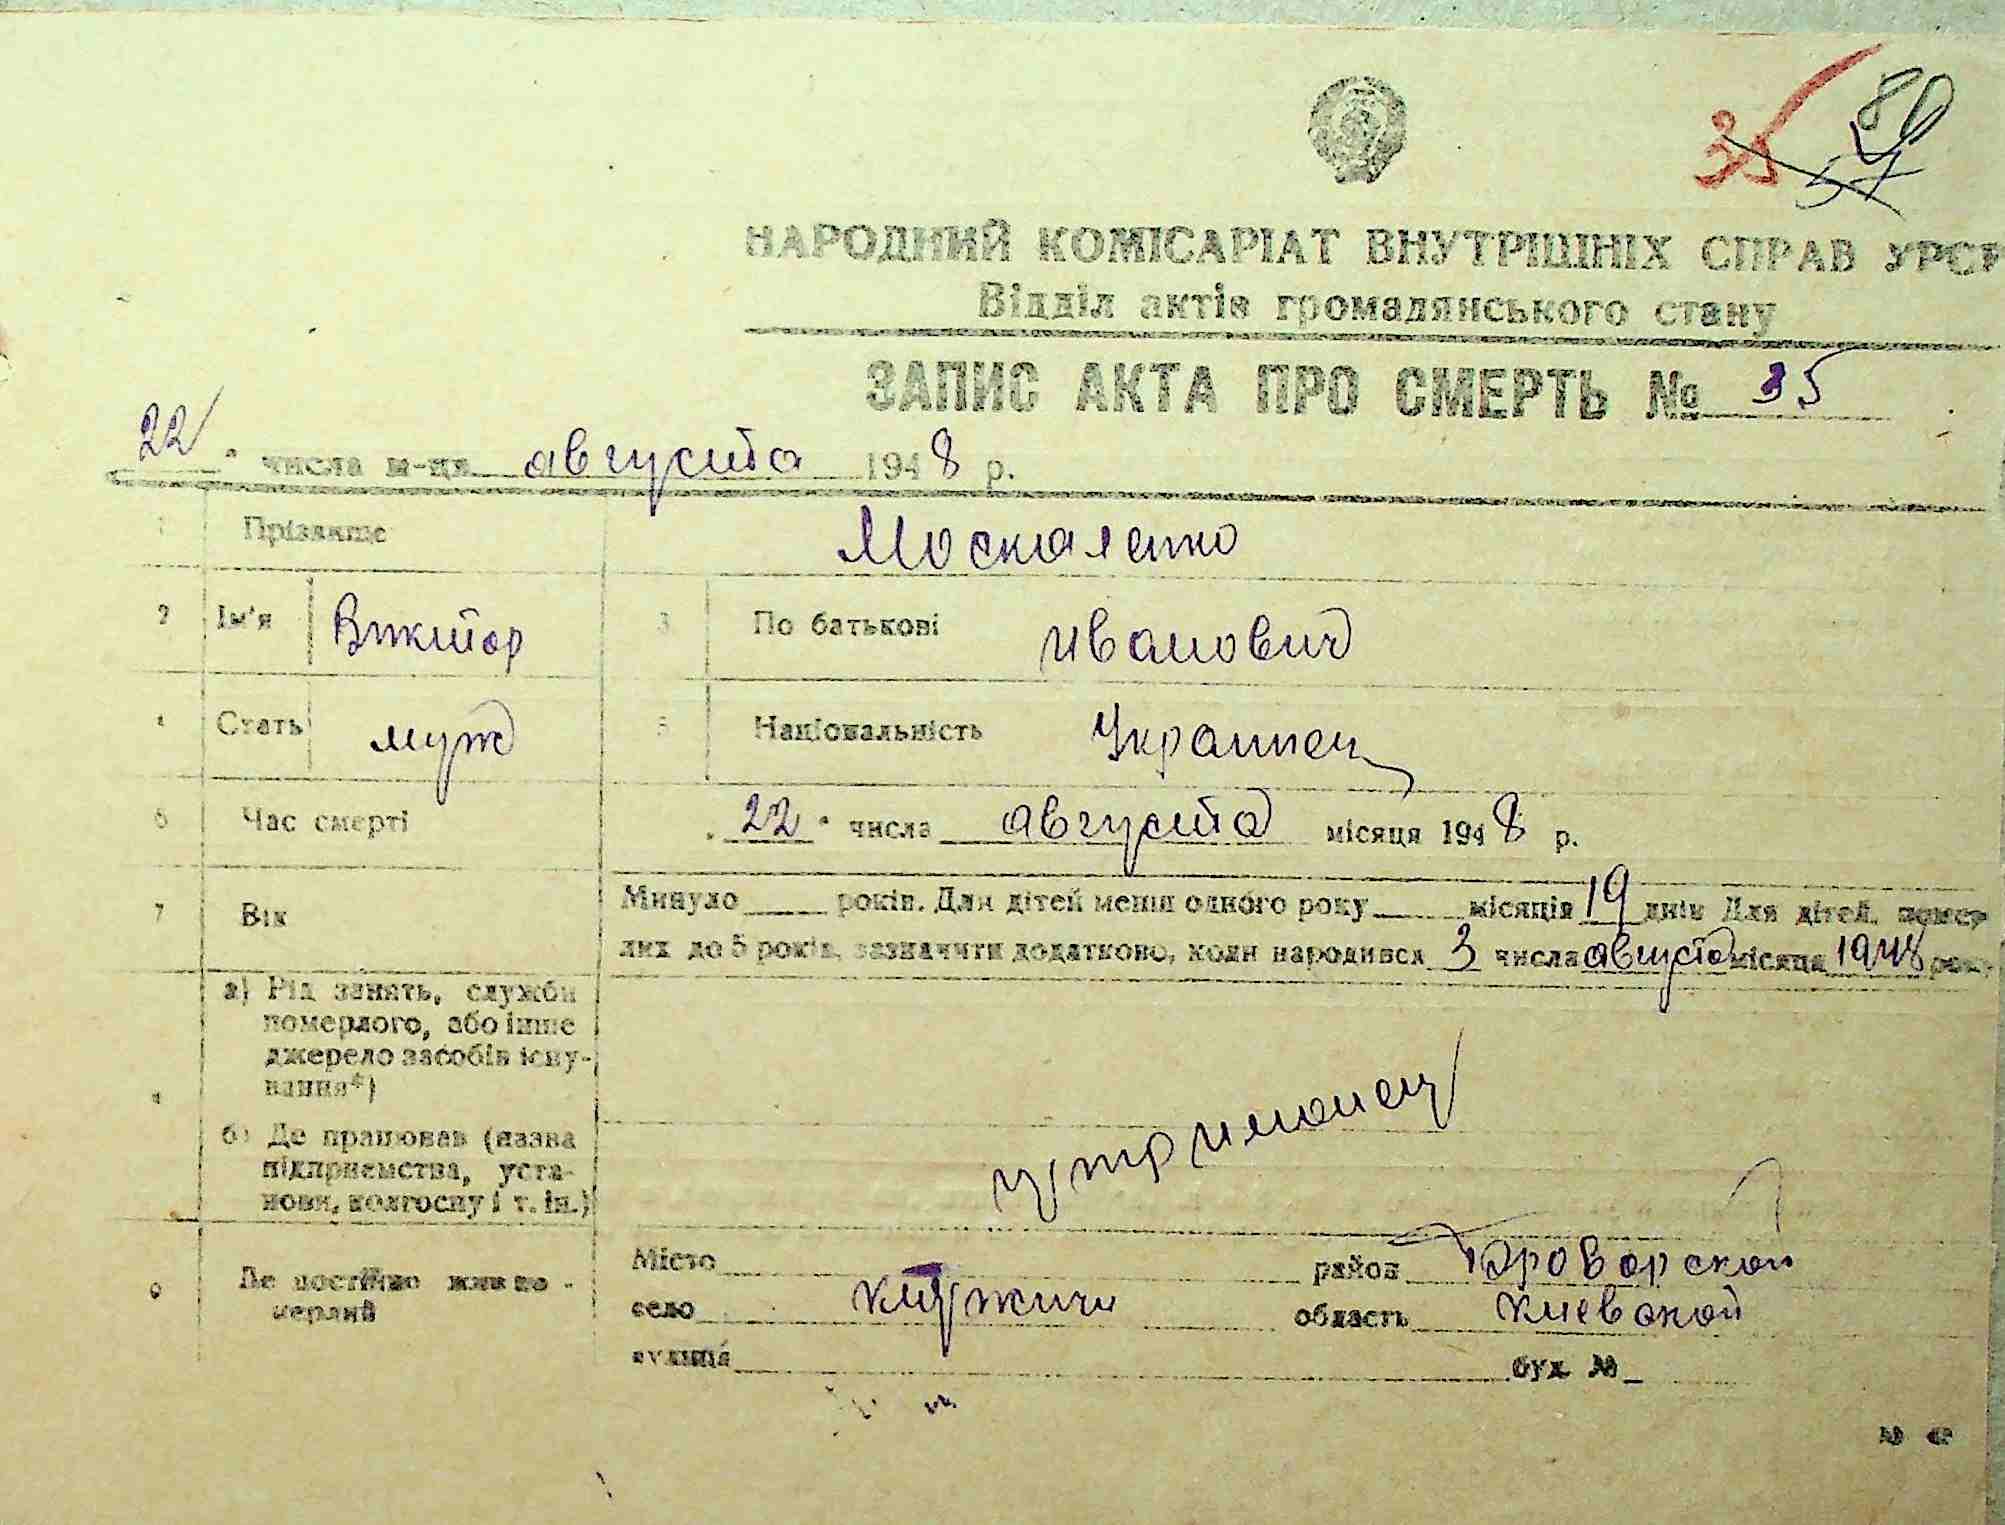 35 57 80
НАРОДНИЙ КОМІСАРІАТ ВНУТРІШНІХ СПРАВ УРСР
Відділ актів громадянського стану
ЗАПИС АКТА ПРО СМЕРТЬ № 35
22 " числа м-ця августа 1948 р.
1 Прізвище Москаленко
2 Ім'я Виктор 3 По батькові Иванович
4 Стать муж 5 Національність Украинец
6 Час смерті "22" числа августа місяця 1948 р.
7 Вік Минуло ____ років. Для дітей менш одного року ____ місяців 19 днів Для дітей, помер-
лих до 5 років, зазначити додатково, коли народився 3 числа августа місяця 1948 року
а) Рід занять, служби
померлого, або інше
джерело засобів існу-
вання*)
утриманец
б) Де працював (назва
підприємства, уста-
нови, колгоспу і т. ін.)
9 Де постійно жив по-
мерлий
Місто ____ район Броварской
село ____ область Киевской
вулиця ____ буд. № _